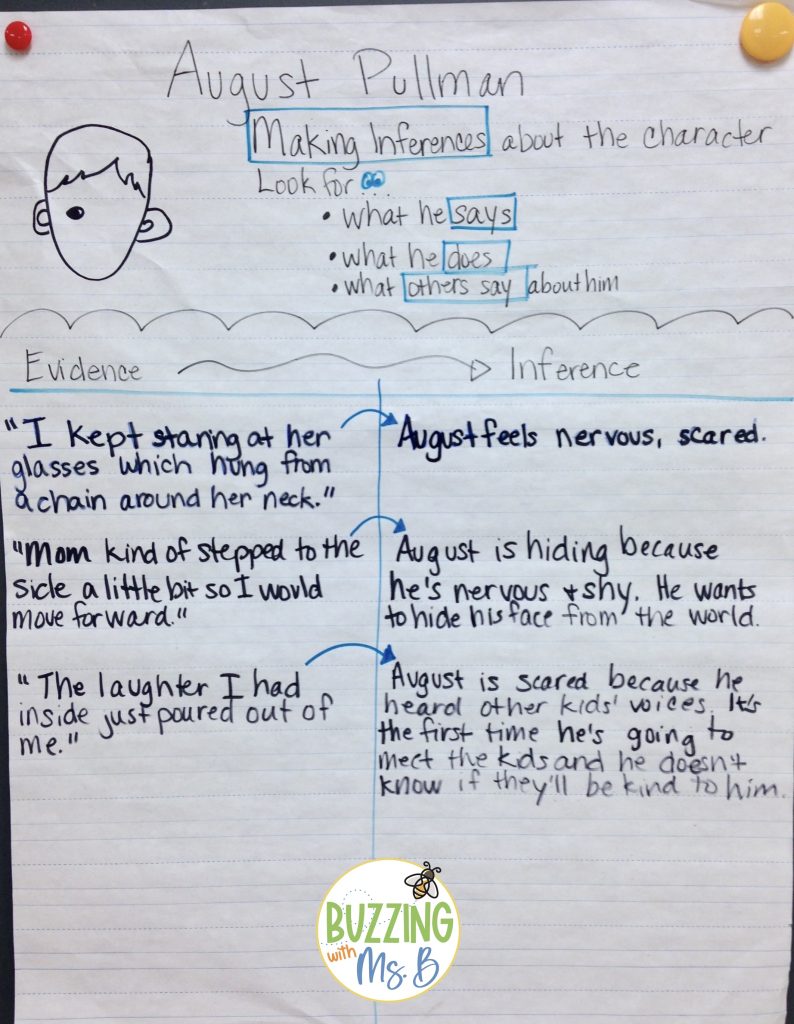 August Pullman
Making Inferences about the character
Look for
• what he says
• what he does
• what others say about him
Evidence
Inference
"I kept staring at her
glasses which hung from
a chain around her neck."
August feels nervous, scared.
"Mom kind of stepped to the
side a little bit so I would
move forward."
August is hiding because
he's nervous + shy. He wants
to hide his face from the world.
"The laughter I had
inside just poured out of
me."
August is scared because he
heard other kids' voices. It's
the first time he's going to
meet the kids and he doesn't
know if they'll be kind to him.
BUZZING
with
Ms. B